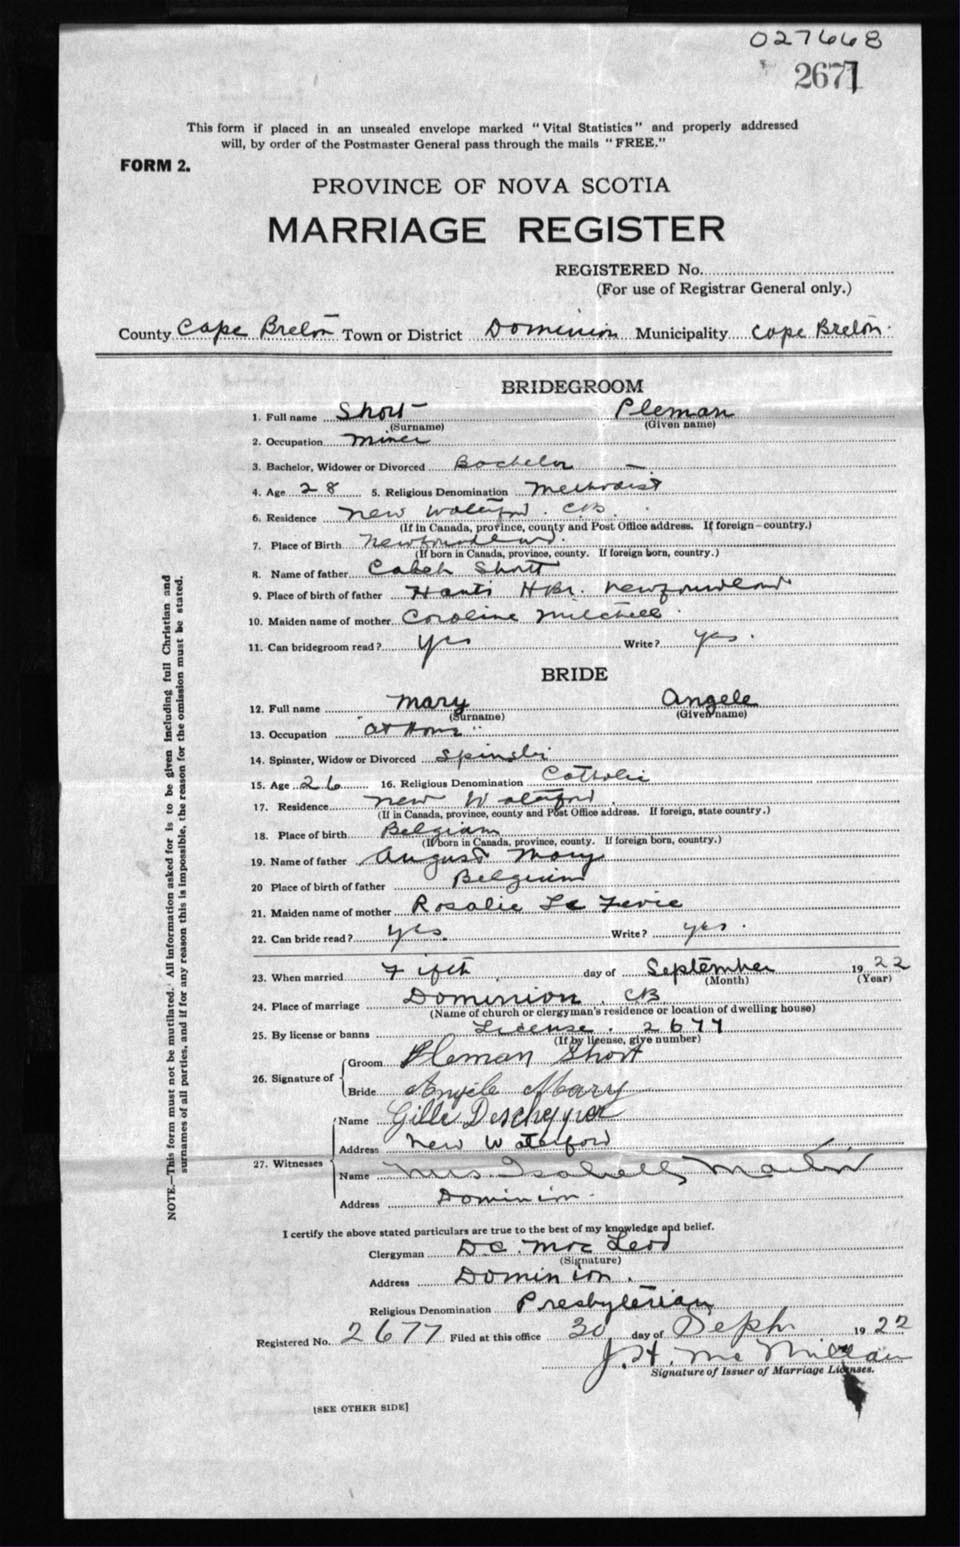 027668
2671
This form if placed in an unsealed envelope marked "Vital Statistics" and properly addressed
will, by order of the Postmaster General pass through the mails "FREE."
FORM 2.
PROVINCE OF NOVA SCOTIA
MARRIAGE REGISTER
REGISTERED No.
(For use of Registrar General only.)
County Cape Breton Town or District Dominion Municipality Cape Breton
BRIDEGROOM
1. Full name Short Pleman
(Surname) (Given name)
2. Occupation miner
3. Bachelor, Widower or Divorced Bachelor
4. Age 28 5. Religious Denomination Methodist
6. Residence New Waterford. CB.
(If in Canada, province, county and Post Office address. If foreign—country.)
7. Place of Birth Newfoundland.
(If born in Canada, province, county. If foreign born, country.)
8. Name of father Caleb Short
9. Place of birth of father Hants Hbr. Newfoundland
10. Maiden name of mother Coroline Mitchell
11. Can bridegroom read? yes Write? yes.
BRIDE
12. Full name Mary Angele
(Surname) (Given name)
13. Occupation "at Home"
14. Spinster, Widow or Divorced Spinster
15. Age 26 16. Religious Denomination Catholic
17. Residence New Waterford.
(If in Canada, province, county and Post Office address. If foreign, state country.)
18. Place of birth Belgium
(If born in Canada, province, county. If foreign born, country.)
19. Name of father August Mary
20 Place of birth of father Belgium
21. Maiden name of mother Rosalie Le
22. Can bride read? yes. Write? yes.
23. When married Fifth day of September 1922
(Month) (Year)
24. Place of marriage Dominion. CB
(Name of church or clergyman's residence or location of dwelling house)
25. By license or banns License. 2677
(If by license, give number)
26. Signature of Groom Pleman Short
Bride Angele Mary
27. Witnesses Name Gille
Address New Waterford
Name Mrs. Isabell Martin
Address Dominion.
I certify the above stated particulars are true to the best of my knowledge and belief.
Clergyman D.C. MacLeod
(Signature)
Address Dominion.
Religious Denomination Presbyterian
Registered No. 2677 Filed at this office 30 day of Sept. 1922
J. H. McMillan
Signature of Issuer of Marriage Licenses.
[SEE OTHER SIDE]
NOTE.—This form must not be mutilated. All information asked for is to be given including full Christian and
surnames of all parties, and if for any reason this is impossible, the reason for the omission must be stated.